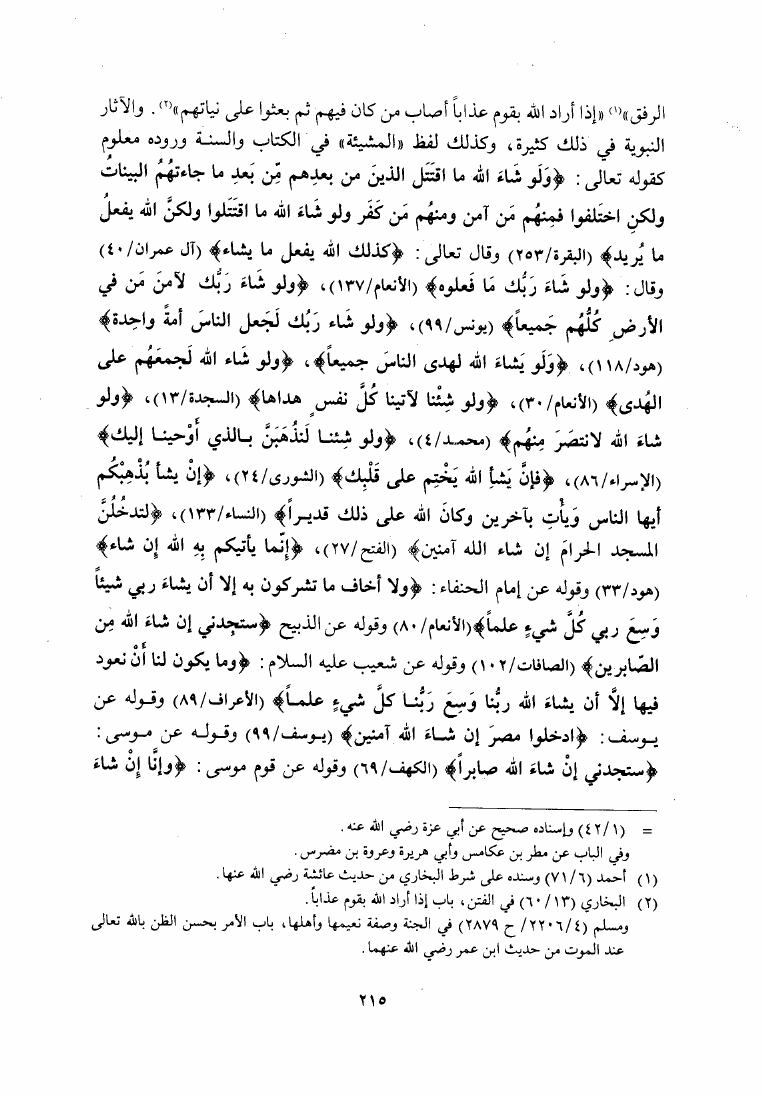 الرفق»(١) «إذا أراد الله بقوم عذاباً أصاب من كان فيهم ثم بعثوا على نياتهم»(٢). والآثار
النبوية في ذلك كثيرة، وكذلك لفظ «المشيئة» في الكتاب والسنة وروده معلوم
كقوله تعالى: ﴿وَلَو شَاءَ الله ما اقتَتَل الذينَ من بعدِهم مِّن بَعدِ ما جاءتهُمُ البيناتُ
ولكنِ اختَلفوا فمِنهُم مَن آمن ومنهُم مَن كَفَر ولو شَاءَ الله ما اقتَتَلوا ولكنَّ الله يفعلُ
ما يُريد﴾ (البقرة/٢٥٣) وقال تعالى: ﴿كذلك الله يفعل ما يشاء﴾ (آل عمران/٤٠)
وقال: ﴿ولو شَاءَ رَبُّك مَا فَعلوه﴾ (الأنعام/١٣٧)، ﴿ولو شَاءَ رَبُّك لآمنَ مَن في
الأرضِ كُلُّهُم جَميعاً﴾ (يونس/٩٩)، ﴿ولو شَاء رَبُك لَجعل الناسَ أمةً واحِدة﴾
(هود/١١٨)، ﴿وَلَو يَشَاءَ الله لهدى الناسَ جميعاً﴾، ﴿ولو شَاء الله لَجمعَهُم على
الهُدى﴾ (الأنعام/٣٠)، ﴿ولو شِئْنا لآتينا كُلَّ نفسٍ هداها﴾ (السجدة/١٣)، ﴿ولو
شاءَ الله لانتصَرَ مِنهُم﴾ (محمد/٤)، ﴿ولو شِئنا لَنذُهَبَنَّ بالذي أَوْحينا إليك﴾
(الإسراء/٨٦)، ﴿فإنَّ يَشأِ الله يَخْتِم على قَلْبِك﴾ (الشورى/٢٤)، ﴿إنْ يشأ يُذْهِبْكُم
أيها الناس وَيأْتِ بآخرين وكانَ الله على ذلك قديراً﴾ (النساء/١٣٣)، ﴿لتدخُلُنَّ
المسجد الحرامَ إن شاء الله آمنين﴾ (الفتح/٢٧)، ﴿إنَّما يأتيكم بِهِ الله إن شاء﴾
(هود/٣٣) وقوله عن إمام الحنفاء: ﴿ولا أخاف ما تشركون به إلا أن يشاءَ ربي شيئاً
وَسِعَ ربي كُلَّ شيءٍ علماً﴾(الأنعام/٨٠) وقوله عن الذبيح ﴿ستجِدني إن شاءَ الله مِن
الصَّابرين﴾ (الصافات/١٠٢) وقوله عن شعيب عليه السلام: ﴿وما يكون لنا أنْ نعود
فيها إلَّا أن يشاءَ الله ربُّنا وَسِعَ رَبُّنا كلَّ شيءٍ علماً﴾ (الأعراف/٨٩) وقوله عن
يوسف: ﴿ادخلوا مصرَ إن شاءَ الله آمنين﴾ (يوسف/٩٩) وقوله عن موسى:
﴿ستجدني إنْ شاءَ الله صابراً﴾ (الكهف/٦٩) وقوله عن قوم موسى: ﴿وإنَّا إنْ شاءَ
= (٤٢/١) وإسناده صحيح عن أبي عزة رضي الله عنه.
وفي الباب عن مطر بن عكامس وأبي هريرة وعروة بن مضرس.
(١) أحمد (٧١/٦) وسنده على شرط البخاري من حديث عائشة رضي الله عنها.
(٢) البخاري (٦٠/١٣) في الفتن، باب إذا أراد الله بقوم عذاباً.
ومسلم (٢٢٠٦/٤/ ح ٢٨٧٩) في الجنة وصفة نعيمها وأهلها، باب الأمر بحسن الظن بالله تعالى
عند الموت من حديث ابن عمر رضي الله عنهما.
٢١٥